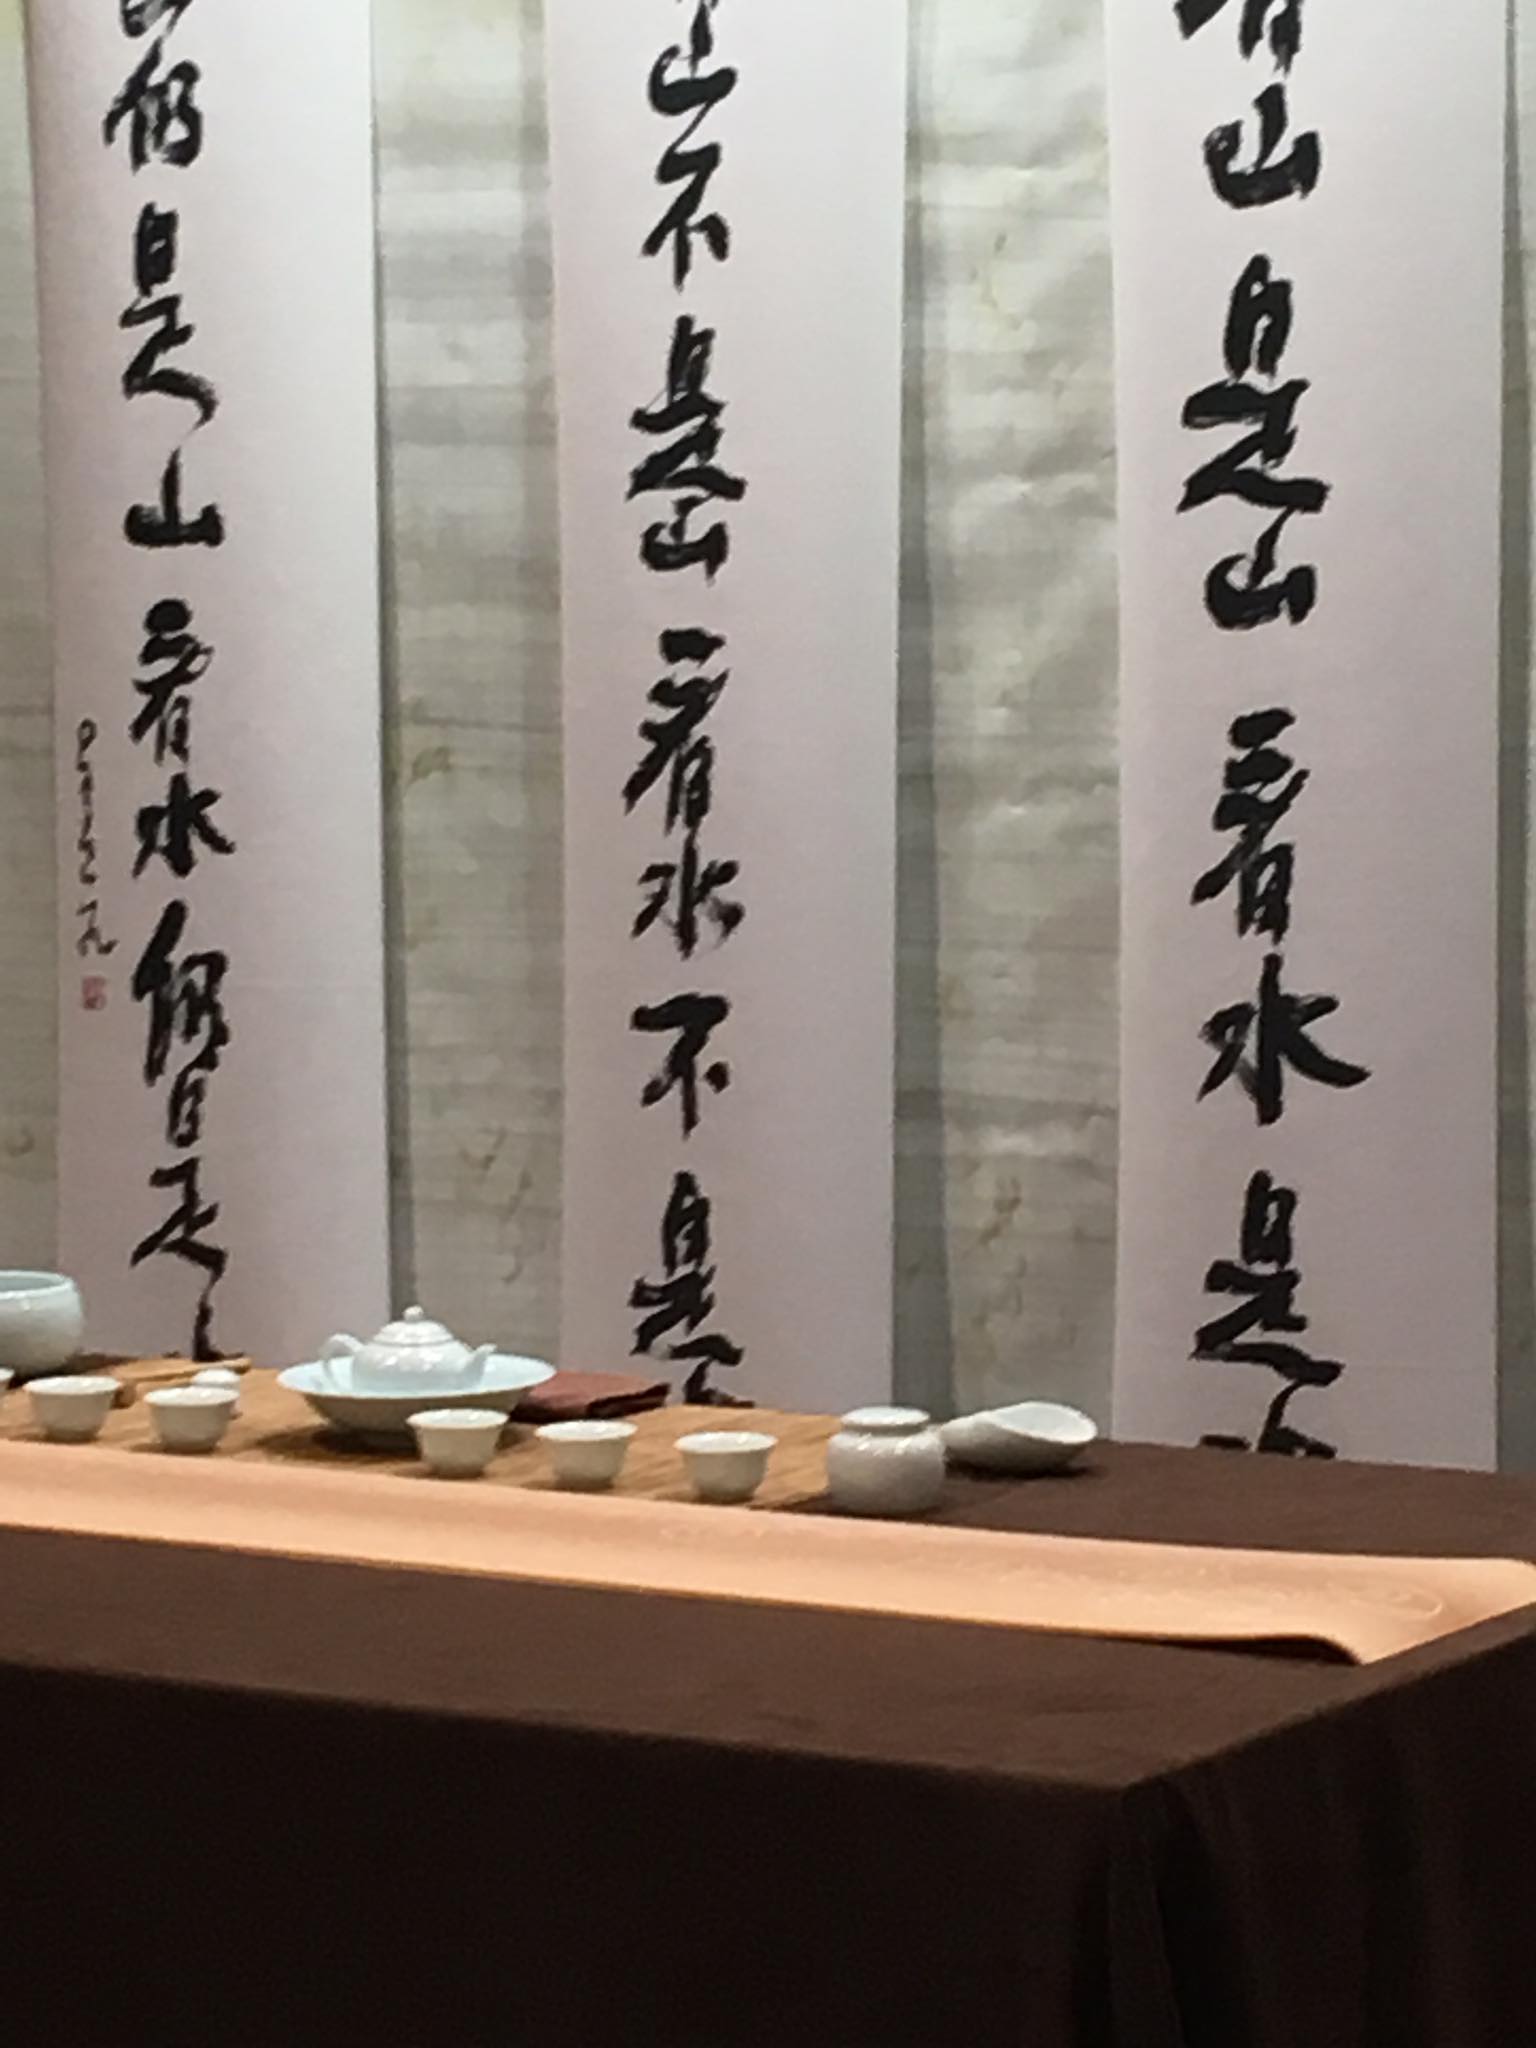 看山是山看水是水
山不是山看水不是水
山仍是山看水仍是水